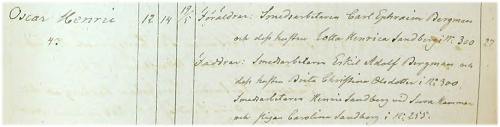 Oscar Henric 12 14 19/5 Föräldrar: Smedsarbetaren Carl Ephraim Bergman
och dess hustru Lotta Henrica Sandberg i No. 300. 27
Faddrar: Smedsarbetaren Eskil Adolf Bergman och
dess hustru Brita Christina Olsdotter i No. 300.
Smedsarbetaren Henric Sandberg vid
och Pigan Carolina Sandberg i No. 255.